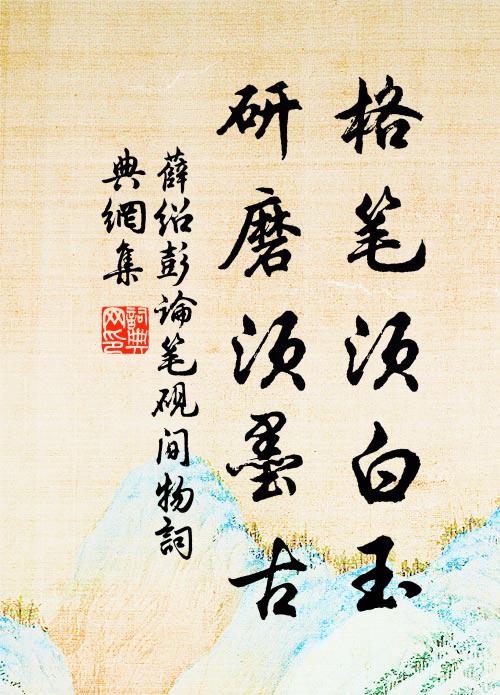 格笔须白玉
研磨须墨古
薛绍彭论笔砚间物词
典網集
詞典網印